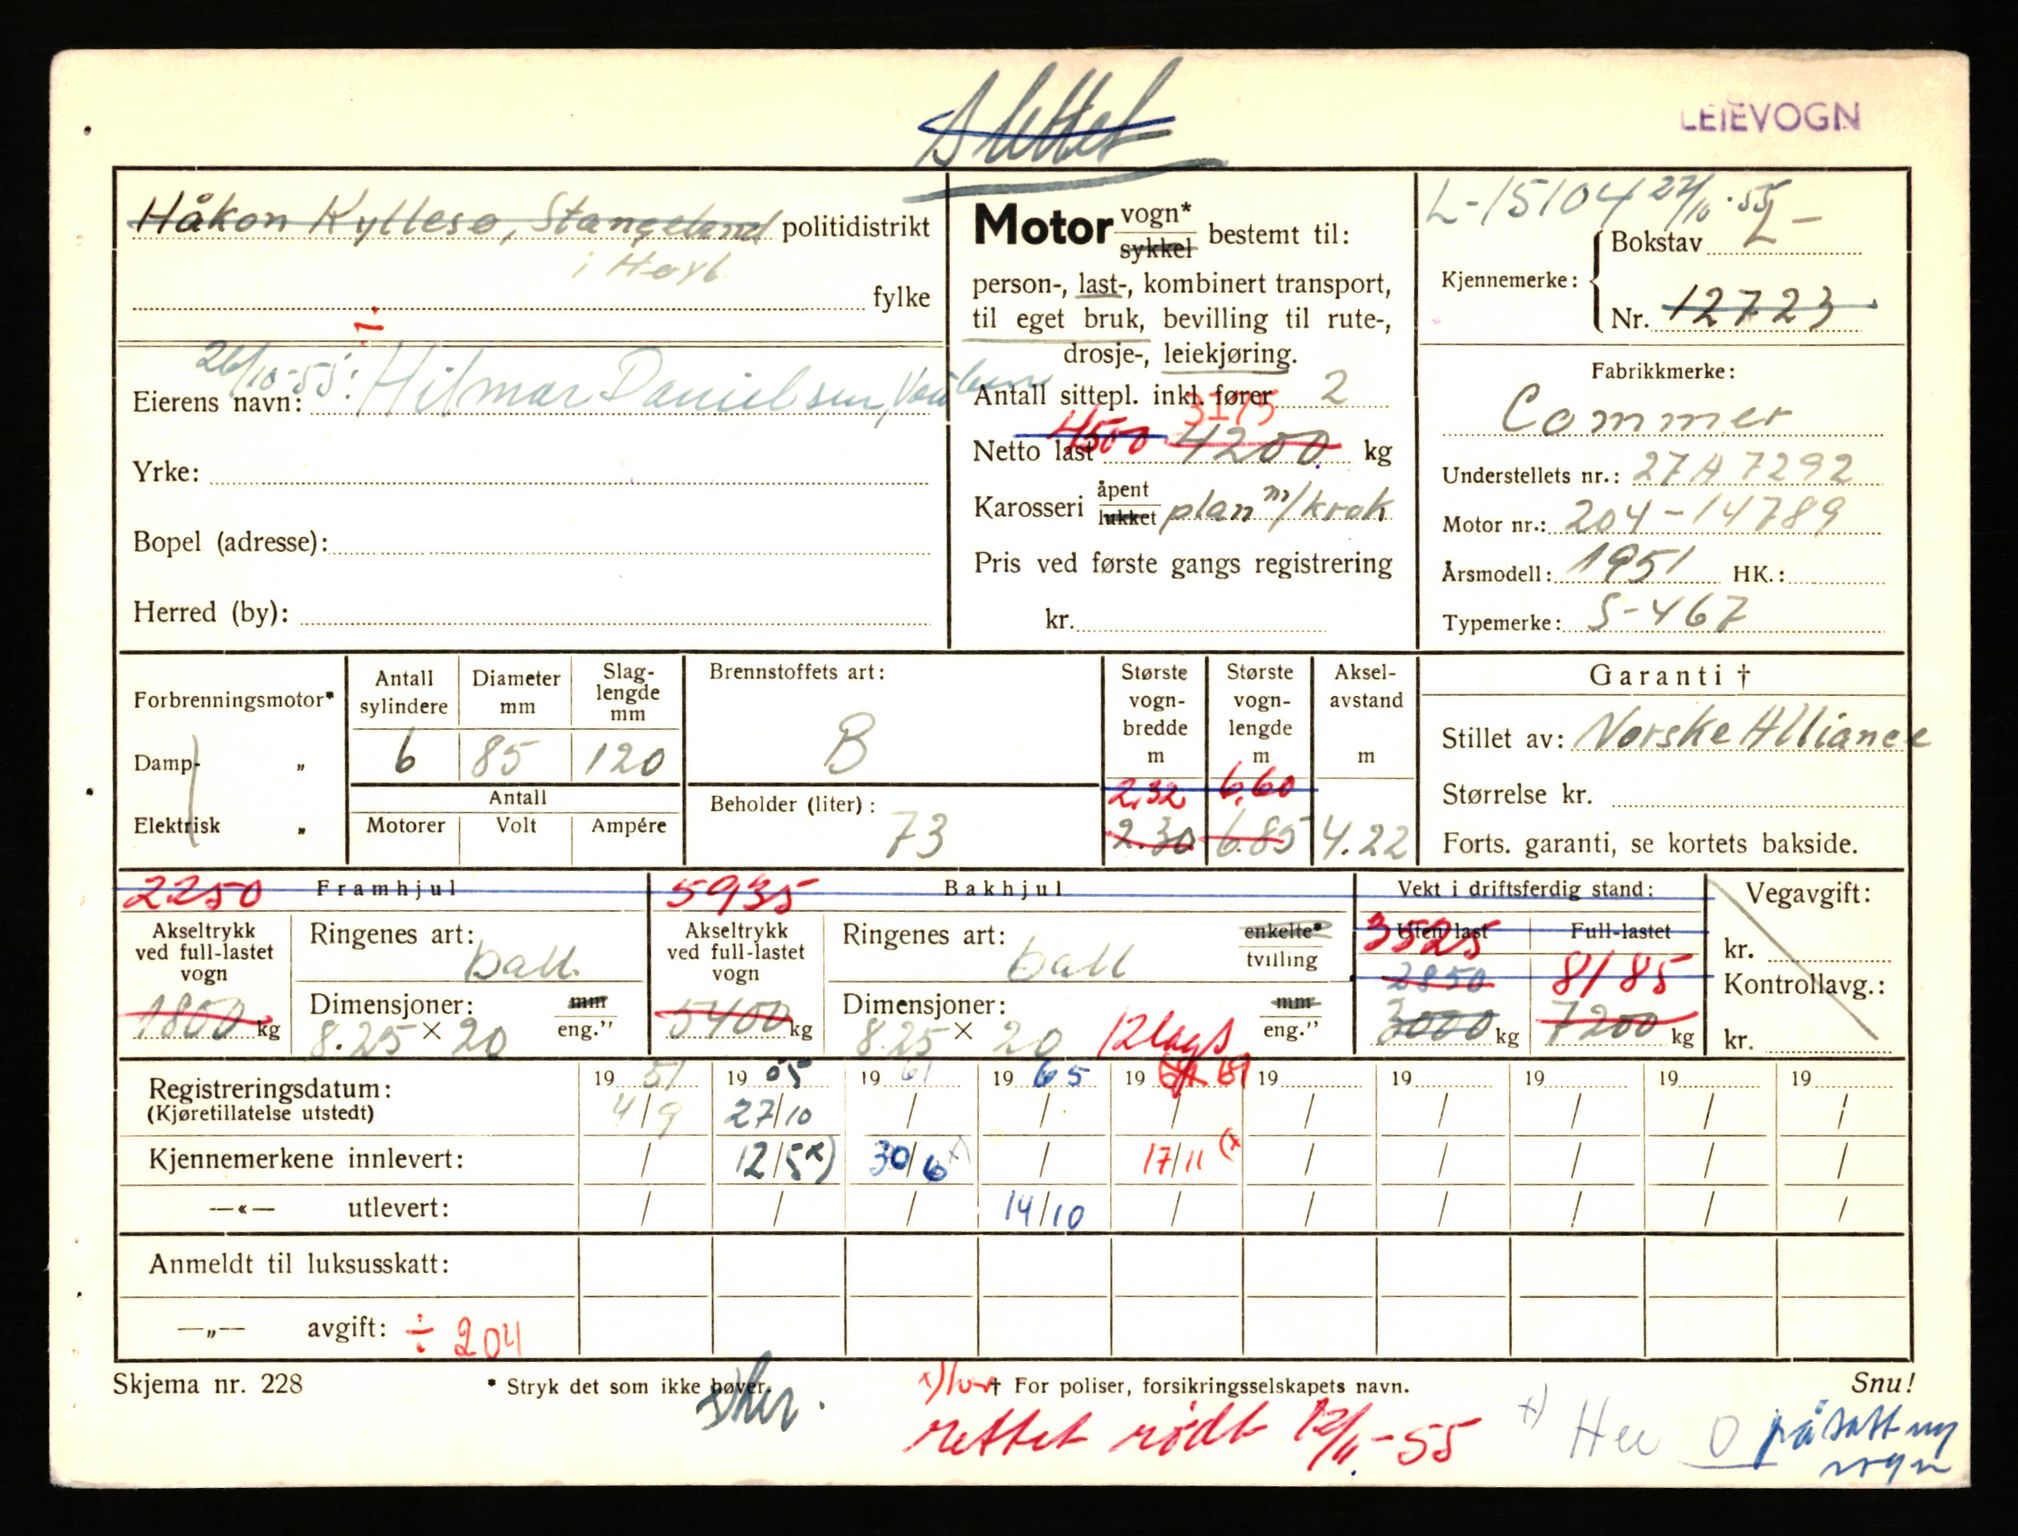 Slettet
LEIEVOGN
Håkon Kyllesø, Stangeland politidistrikt
fylke
Motor vogn* sykkel bestemt til:
person-, last-, kombinert transport,
til eget bruk, bevilling til rute-,
drosje-, leiekjøring.
L-15104 27/10-55
Kjennemerke: Bokstav L-
Nr. 12723
Eierens navn: 26/10-55: Hilmar Danielsen,
Yrke:
Bopel (adresse):
Herred (by):
Antall sittepl. inkl. fører 2
3175
Netto last 4500 4200 kg
Karosseri åpent lukket plan m/krok
Pris ved første gangs registrering
kr.
Fabrikkmerke:
Commer
Understellets nr.: 27A7292
Motor nr.: 204-14789
Årsmodell: 1951 HK.:
Typemerke: S-467
Forbrenningsmotor*
Damp- „
Elektrisk „
Antall sylindere
Diameter mm
Slag-lengde mm
6 85 120
Antall
Motorer Volt Ampére
Brennstoffets art:
B
Beholder (liter):
73
Største vogn-bredde m
2.32
2.30
Største vogn-lengde m
6.60
6.85
Aksel-avstand m
4.22
Garanti †
Stillet av: Norske Alliance
Størrelse kr.
Forts. garanti, se kortets bakside.
2250 Framhjul
Akseltrykk ved full-lastet vogn
1800 kg
Ringenes art: ball.
Dimensjoner: mm
8.25 × 20 eng.”
5935 Bakhjul
Akseltrykk ved full-lastet vogn
5400 kg
Ringenes art: ball enkelte* tvilling
Dimensjoner: mm
8.25 × 20 12 lags eng.”
Vekt i driftsferdig stand:
Uten last Full-lastet
3525
2850 8185
3000 kg 7200 kg
Vegavgift:
kr.
Kontrollavg.:
kr.
Registreringsdatum: 19 51 19 55 19 61 19 65 19 69 19 19 19 19 19
(Kjøretillatelse utstedt) 4/9 27/10 / / / / / / / /
Kjennemerkene innlevert: / 12/5 x) 30/6 x) / 17/11 (x / / / / /
—«— utlevert: / / / 14/10 / / / / / /
Anmeldt til luksusskatt:
—„— avgift: ÷ 204
Skjema nr. 228
* Stryk det som ikke høver.
† For poliser, forsikringsselskapets navn.
Snu!
x) her.
rettet rødt 12/11-55
x) Her 0 påsatt ny
vogn